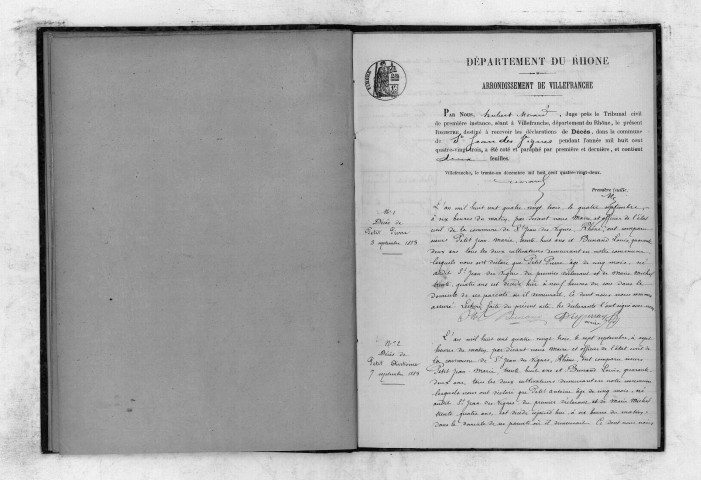 DÉPARTEMENT DU RHONE
ARRONDISSEMENT DE VILLEFRANCHE
PAR NOUS, Morand, Juge près le Tribunal civil
de première instance, séant à Villefranche, département du Rhône, le présent
REGISTRE, destiné à recevoir les déclarations de Décès, dans la commune
de St Jean des Vignes pendant l'année mil huit cent
quatre-vingt-trois, a été coté et paraphé par première et dernière, et contient
feuilles.
Villefranche, le trente-un décembre mil huit cent quatre-vingt-deux.
Première feuille.
No 1
Décès de
Petit Pierre
3 septembre 1883
L'an mil huit cent quatre vingt trois, le quatre septembre,
à six heures du matin, par devant nous Maire et officier de l'état
civil de la commune de St Jean des Vignes, Rhône, ont comparu
Petit Jean Marie, trente huit ans et Bunand Louis, quarante
deux ans, tous les deux cultivateurs demeurant en notre commune
lesquels nous ont déclaré que Petit Pierre âgé de cinq mois, né
audit St Jean des Vignes, du premier déclarant et de Marie Michel
trente quatre ans est décédé hier à neuf heures du soir dans le
domicile de ses parents où il demeurait. Ce dont nous nous sommes
assuré. Lecture faite du présent acte, les déclarants l'ont signé avec nous
No 2
Décès de
Petit Antoine
7 septembre 1883
L'an mil huit cent quatre vingt trois, le sept septembre, à sept
heures du matin, par devant nous Maire et officier de l'état civil de
la commune de St Jean des Vignes, Rhône, ont comparu
Petit Jean Marie, trente huit ans et Bunand Louis, quarante
deux ans, tous les deux cultivateurs demeurant en notre commune
lesquels nous ont déclaré que Petit Antoine âgé de cinq mois, né
audit St Jean des Vignes, du premier déclarant et de Marie Michel
trente quatre ans, est décédé à six heures du matin,
dans le domicile de ses parents où il demeurait. Ce dont nous nous